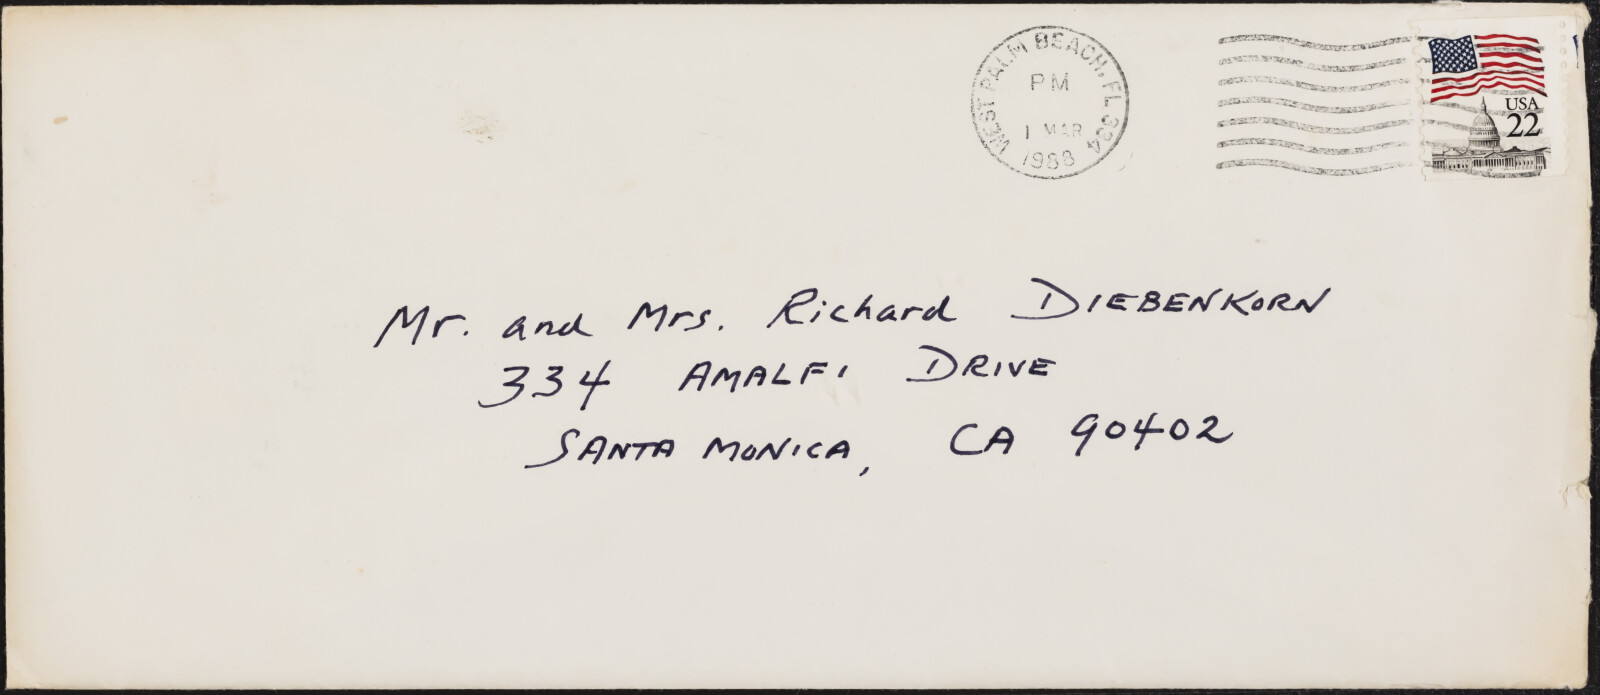 WEST PALM BEACH, FL 334
PM
1 MAR
1988
USA
22
Mr. and Mrs. Richard DIEBENKORN
334 AMALFI DRIVE
SANTA MONICA, CA 90402